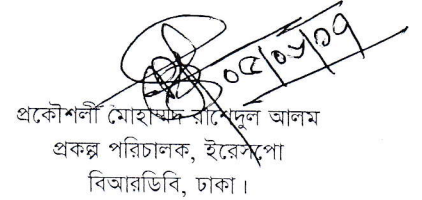 ০৫/০৬/১৭
প্রকৌশলী মোহাম্মদ রাশেদুল আলম
প্রকল্প পরিচালক, ইরেসপো
বিআরডিবি, ঢাকা।